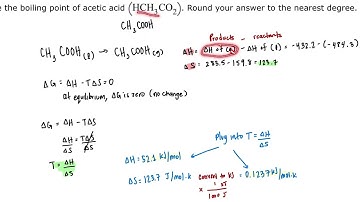 e the boiling point of acetic acid (HCH₃CO₂). Round your answer to the nearest degree.
CH₃COOH
CH₃COOH(l) → CH₃COOH(g)
Products - reactants
ΔH = ΔH°f (g) - ΔH°f (l) = -432.2 - (-484.3)
ΔS = 283.5 - 159.8 = 123.7
ΔG = ΔH - TΔS = 0
at equilibrium, ΔG is zero (no change)
ΔG = ΔH - TΔS
ΔH/ΔS = TΔS/ΔS
T = ΔH/ΔS
Plug into T = ΔH/ΔS
ΔH = 52.1 kJ/mol
ΔS = 123.7 J/mol·K
Convert to kJ
× 1 kJ/1000 J
= 0.1237 kJ/mol·K